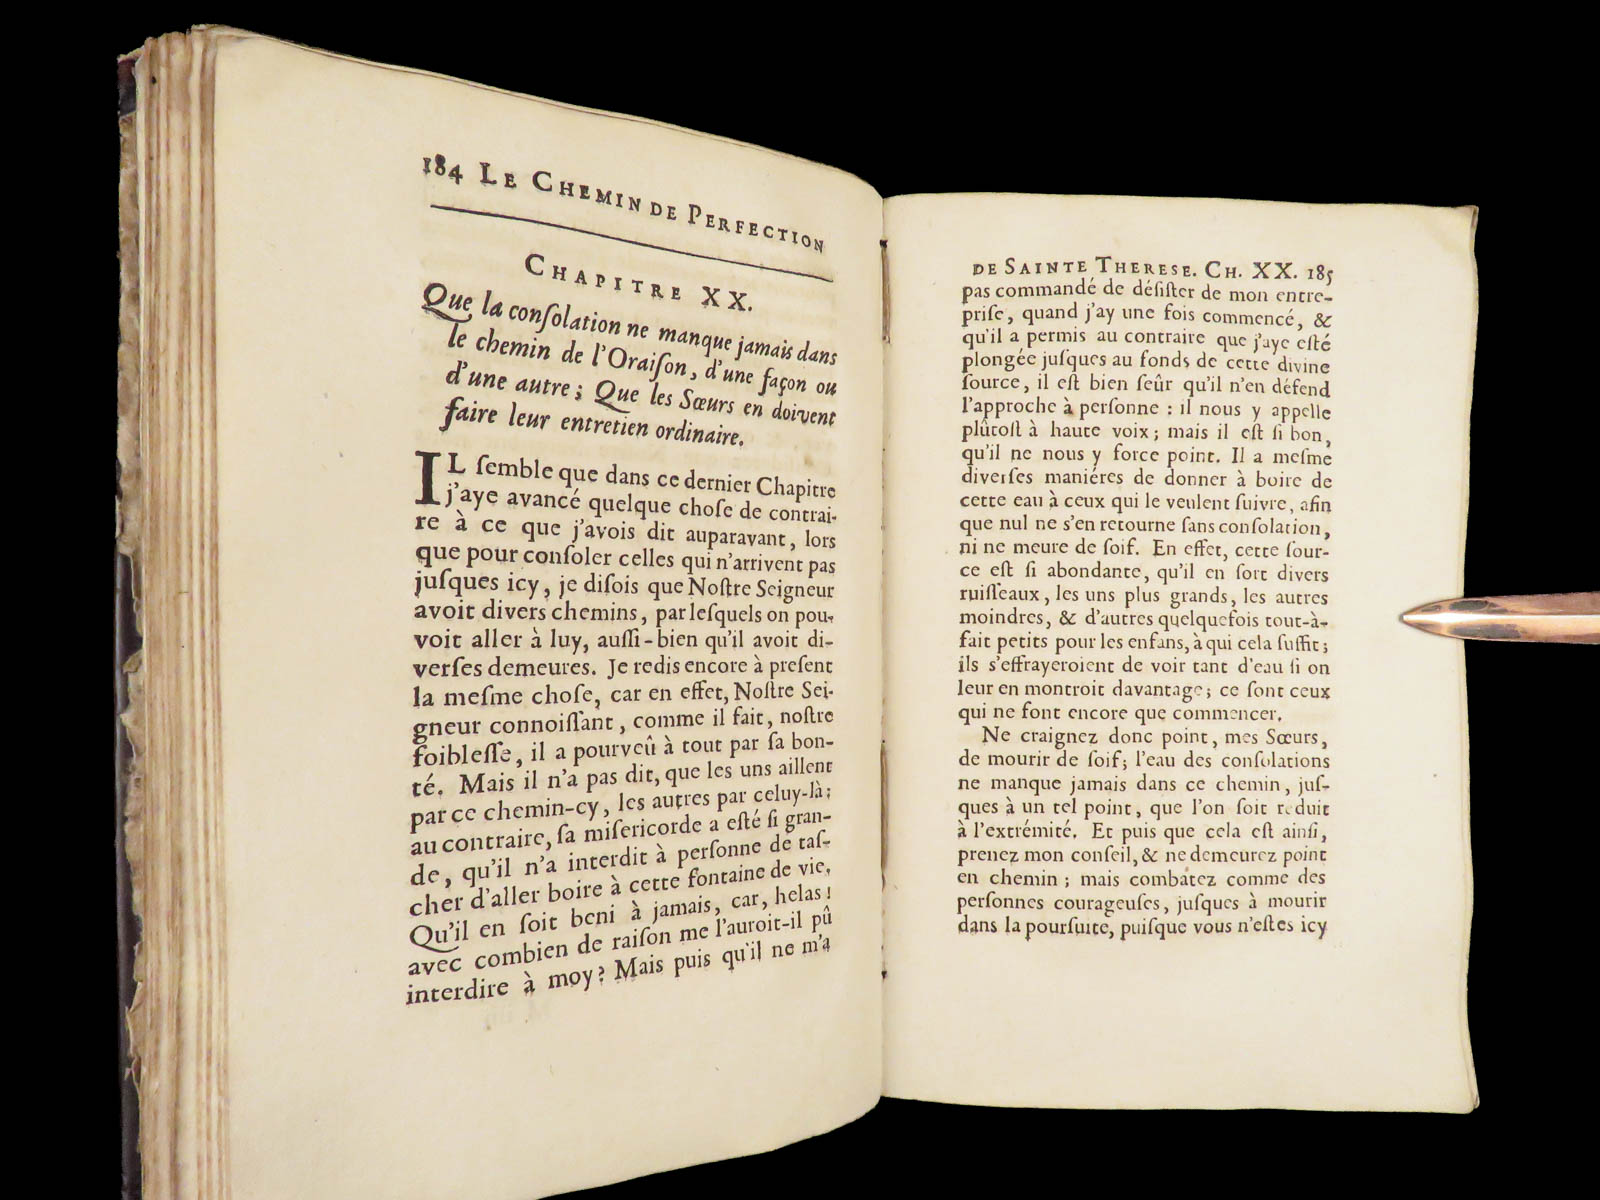 184 LE CHEMIN DE PERFECTION
CHAPITRE XX.
Que la conſolation ne manque jamais dans
le chemin de l'Oraiſon, d'une façon ou
d'une autre; Que les Sœurs en doivent
faire leur entretien ordinaire.
IL ſemble que dans ce dernier Chapitre
j'aye avancé quelque choſe de contrai-
re à ce que j'avois dit auparavant, lors
que pour conſoler celles qui n'arrivent pas
juſques icy, je diſois que Noſtre Seigneur
avoit divers chemins, par leſquels on pou-
voit aller à luy, auſſi-bien qu'il avoit di-
verſes demeures. Je redis encore à preſent
la meſme choſe, car en effet, Noſtre Sei-
gneur connoiſſant, comme il fait, noſtre
foibleſſe, il a pourveû à tout par ſa bon-
té. Mais il n'a pas dit, que les uns aillent
par ce chemin-cy, les autres par celuy-là;
au contraire, ſa miſericorde a eſté ſi gran-
de, qu'il n'a interdit à perſonne de taſ-
cher d'aller boire à cette fontaine de vie.
Qu'il en ſoit beni à jamais, car, helas!
avec combien de raiſon me l'auroit-il pû
interdire à moy? Mais puis qu'il ne m'a
DE SAINTE THERESE. CH. XX. 185
pas commandé de déſiſter de mon entre-
priſe, quand j'ay une fois commencé, &
qu'il a permis au contraire que j'aye eſté
plongée juſques au fonds de cette divine
ſource, il eſt bien ſeûr qu'il n'en défend
l'approche à perſonne : il nous y appelle
plûtoſt à haute voix; mais il eſt ſi bon,
qu'il ne nous y force point. Il a meſme
diverſes maniéres de donner à boire de
cette eau à ceux qui le veulent ſuivre, afin
que nul ne s'en retourne ſans conſolation,
ni ne meure de ſoif. En effet, cette ſour-
ce eſt ſi abondante, qu'il en ſort divers
ruiſſeaux, les uns plus grands, les autres
moindres, & d'autres quelquefois tout-à-
fait petits pour les enfans, à qui cela ſuffit;
ils s'effrayeroient de voir tant d'eau ſi on
leur en montroit davantage; ce ſont ceux
qui ne font encore que commencer.
Ne craignez donc point, mes Sœurs,
de mourir de ſoif; l'eau des conſolations
ne manque jamais dans ce chemin, juſ-
ques à un tel point, que l'on ſoit reduit
à l'extrémité. Et puis que cela eſt ainſi,
prenez mon conſeil, & ne demeurez point
en chemin; mais combatez comme des
perſonnes courageuſes, juſques à mourir
dans la pourſuite, puiſque vous n'eſtes icy